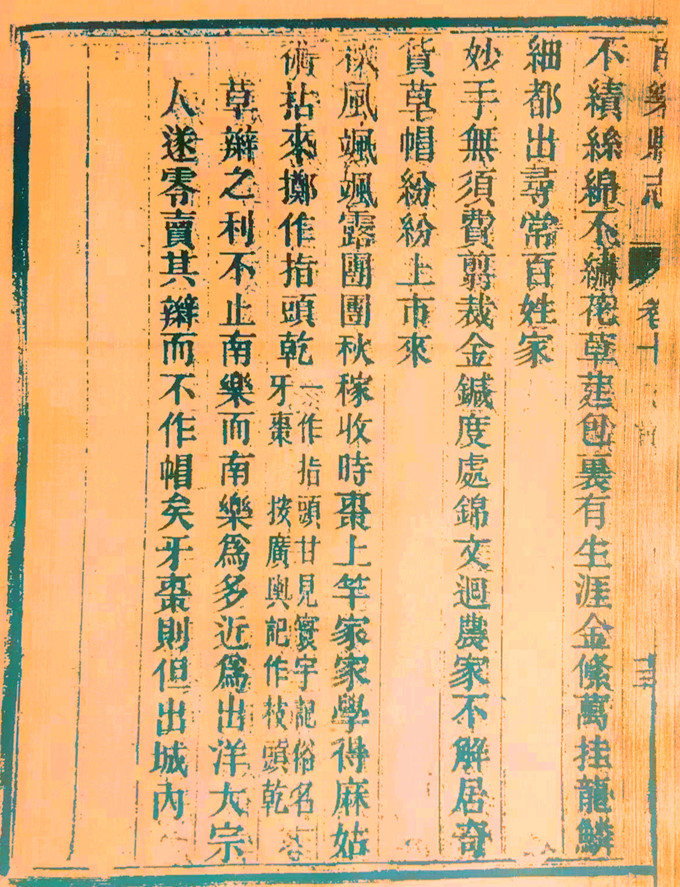 南樂縣志 卷十
不績絲綿不繡花草莛包裹有生涯金條萬挂龍鱗
細都出尋常百姓家
妙手無須費剪裁金鍼度處錦文迴農家不解居奇
貨草帽紛紛上市來
風颯颯露團團秋稼收時棗上竿家家學得麻姑
術拈來擲作指頭乾 一作指頭甘見寰宇記俗名
牙棗 按廣輿記作枝頭乾
草辮之利不止南樂而南樂爲多近爲出洋大宗
人遂零賣其辮而不作帽矣牙棗則但出城內